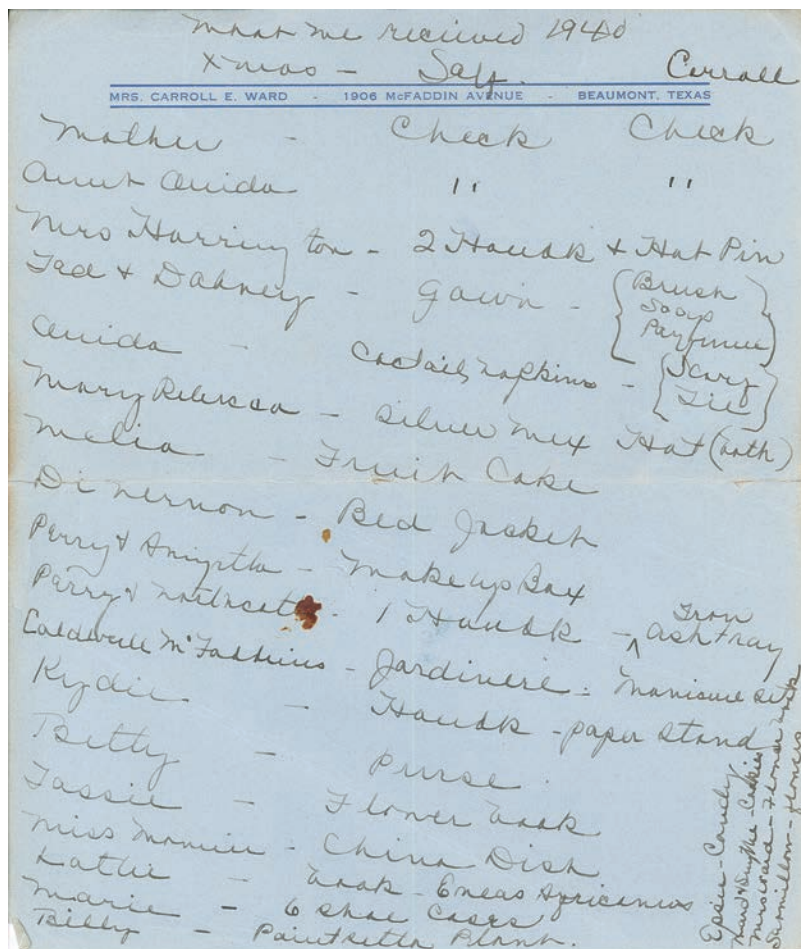 What we received 1940
Xmas - Self. Carroll
MRS. CARROLL E. WARD - 1906 McFADDIN AVENUE - BEAUMONT, TEXAS
Mother - Check Check
Aunt Ouida " "
Mrs Harrington - 2 Handk + Hat Pin
Ted + Dabney - Gown - Brush
Soap
Perfume
Ouida - Coctail napkins - Scarf
Tie
Mary Rebecca - Silver Mex Hat (both)
Melia - Fruit Cake
Di Vernon - Bed Jacket
Perry & Smytha - Makeup Box
Perry & - 1 Handk - Iron Ash tray
Caldwell McFaddins - Jardinere - Manicure set
Kydie - Handk - paper stand
Betty - purse
Tassie - Flower book
Miss Mamie - China Dish
Katie - book -
Marie - 6 Shoe Cases
Billy - Paintsetta Plant.
Epsie - Candy
- Cookies
- Flower book
- flowers